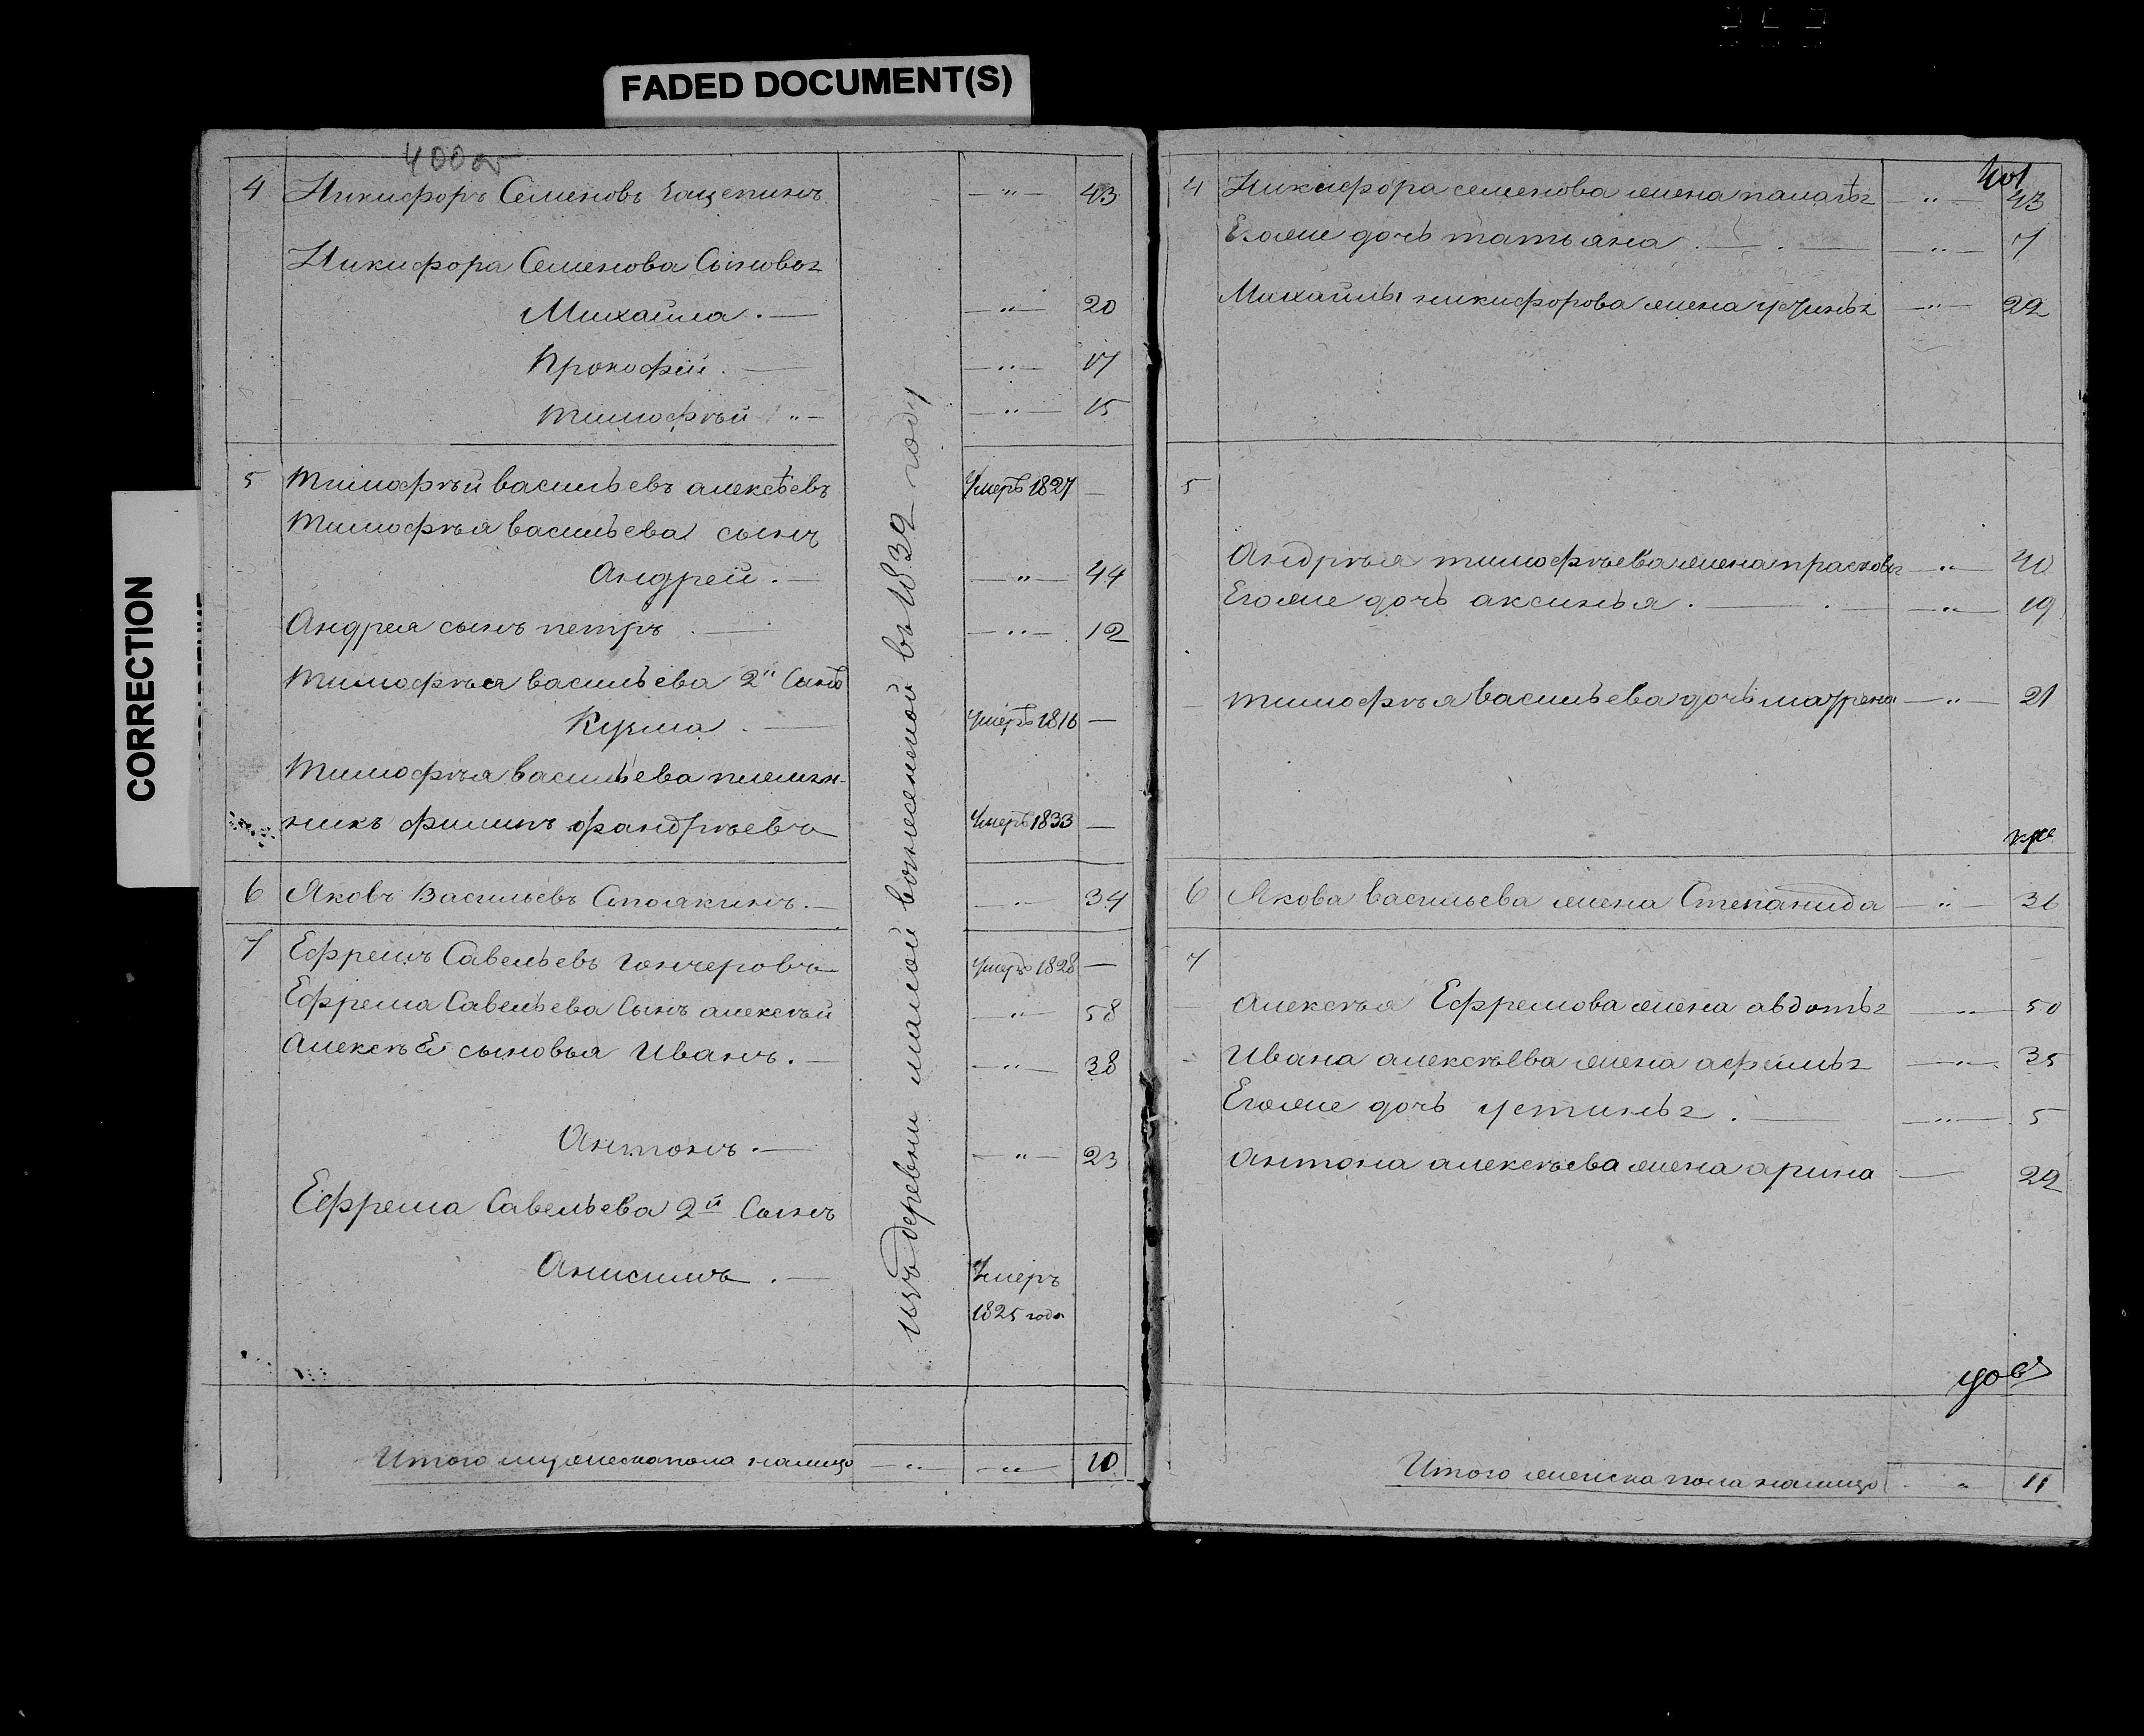 FADED DOCUMENT(S)
CORRECTION
400 об
4 Никифоръ Семеновъ Кащепинъ —"— 43
Никифора Семенова Сыновья
Михайла . — —"— 20
Прокофей . — —"— 17
Тимофъй "— —"— 15
5 Тимофъй васильевъ алексѣевъ Умеръ 1827 —
Тимофъя васильева сынъ
Андрей . — —"— 44
Андрея сынъ петръ . — —"— 12
Тимофъя васильева 2й Сынъ
Кузма . — Умеръ 1816 —
Тимофъя васильева племян-
никъ филипъ фандръевъ Умеръ 1833 —
6 Яковъ Васильевъ Столякинъ . — —"— 34
7 Ефремъ Савельевъ гончеровъ Умеръ 1828 —
Ефрема Савельева Сынъ алексъй —"— 58
Алексъя сыновья Иванъ . — —"— 38
Антонъ . — —"— 23
Ефрема Савельева 2й Сынъ
Анисимъ . — Умеръ
1825 года
изъ деревни малой вознесеной въ 1832 году
Итого мужеска пола налицо —"— —"— 10
401
4 Никифора семенова жена палагѣя —"— 43
Егоже дочь татьяна . — . — —"— 7
Михайлы никифорова жена устинья —"— 22
5
Андръя тимофъева жена прасковья —"— 40
Егоже дочь аксинья . — . — —"— 19
Тимофъя васильева дочь матрена —"— 21
6 Якова васильева жена Степанида —"— 36
7
Алексъя Ефремова жена авдотья —"— 50
Ивана алексъева жена афимья —"— 35
Егоже дочь устинья . — —"— 5
Антона алексъева жена арина — 22
Итого женска пола налицо " 11